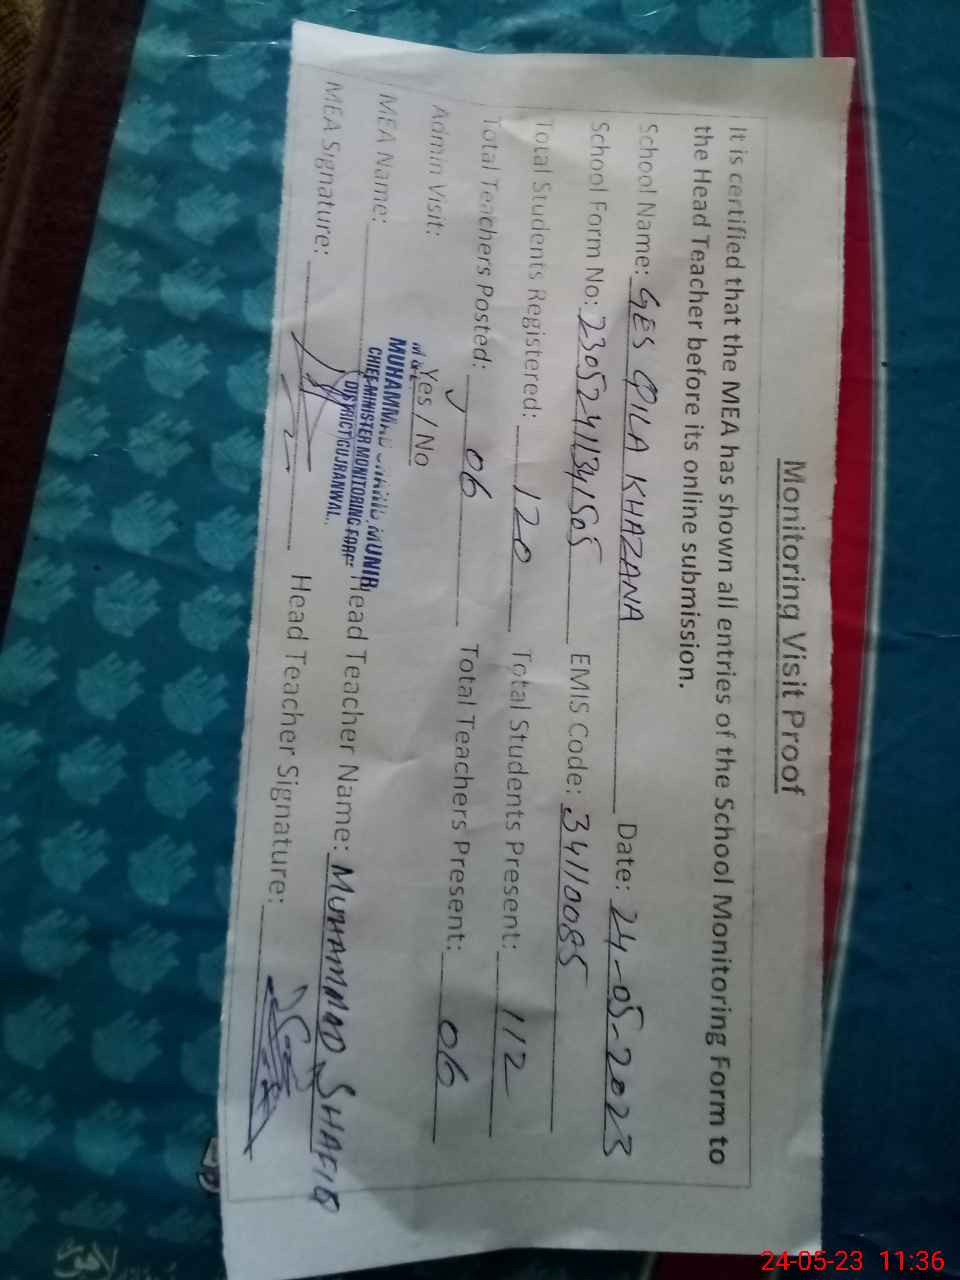 Monitoring Visit Proof
It is certified that the MEA has shown all entries of the School Monitoring Form to
the Head Teacher before its online submission.
School Name: GES QILA KHAZANA Date: 24-05-2023
School Form No: 23052411341505 EMIS Code: 34110085
Total Students Registered: 120 Total Students Present: 112
Total Teachers Posted: 06 Total Teachers Present: 06
Admin Visit: Yes / No
MUHAMMAD MUNIR
CHIEF MINISTER MONITORING FORC
DISTRICT GUJRANWAL
MEA Name: Head Teacher Name: MUHAMMAD SHAFIQ
MEA Signature: Head Teacher Signature:
24-05-23 11:36